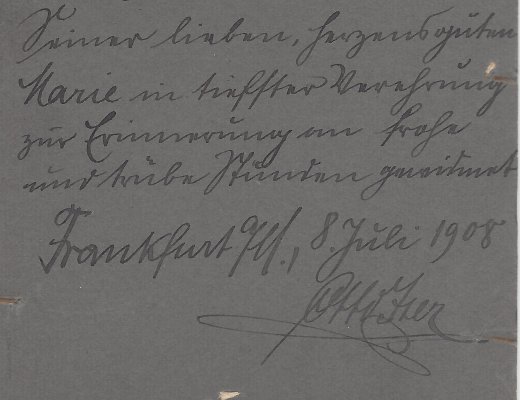 Seiner lieben, herzensguten
Marie in tiefster Verehrung
zur Erinnerung an frohe
und trübe Stunden gewidmet
Frankfurt a/M., 8. Juli 1908
Otto